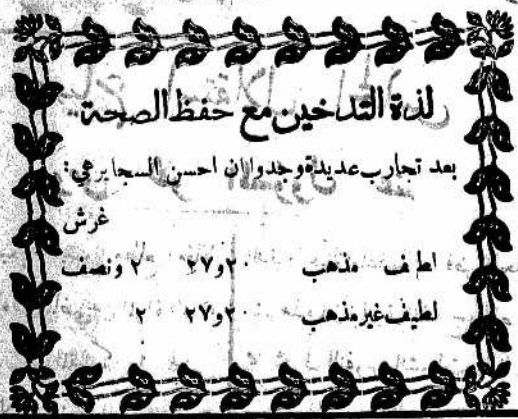 لذة التدخين مع حفظ الصحة
بعد تجارب عديدة وجدوا ان احسن السجاير هي:
غرش
لطيف مذهب ٢٠ و٢٧ ٢ ونصف
لطيف غير مذهب ٢٠ و٢٧ ٢